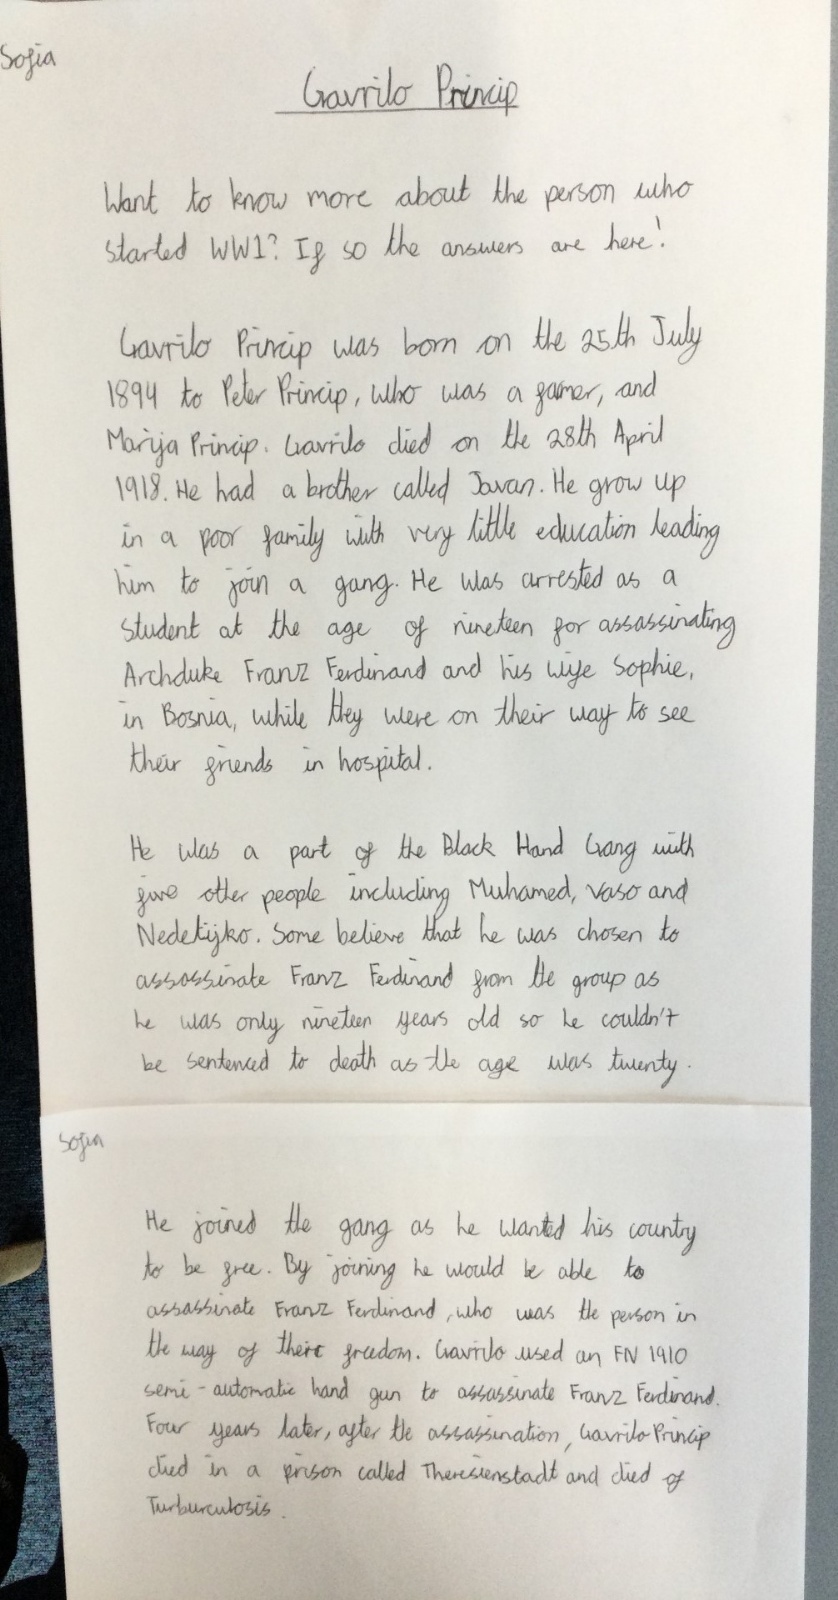 Sofia
Gavrilo Princip
Want to know more about the person who
started WW1? If so the answers are here!
Gavrilo Princip was born on the 25th July
1894 to Peter Princip, who was a famer, and
Marija Princip. Gavrilo died on the 28th April
1918. He had a brother called Jovan. He grow up
in a poor family with very little education leading
him to join a gang. He was arrested as a
student at the age of nineteen for assassinating
Archduke Franz Ferdinand and his wife Sophie,
in Bosnia, while they were on their way to see
their friends in hospital.
He was a part of the Black Hand Gang with
five other people including Muhamed, Vaso and
Nedelijko. Some believe that he was chosen to
assassinate Franz Ferdinand from the group as
he was only nineteen years old so he couldn't
be sentenced to death as the age was twenty.
Sofia
He joined the gang as he wanted his country
to be free. By joining he would be able to
assassinate Franz Ferdinand, who was the person in
the way of their freedom. Gavrilo used an FN 1910
semi-automatic hand gun to assassinate Franz Ferdinand.
Four years later, after the assassination, Gavrilo Princip
died in a prison called Theresienstadt and died of
Turburculosis.